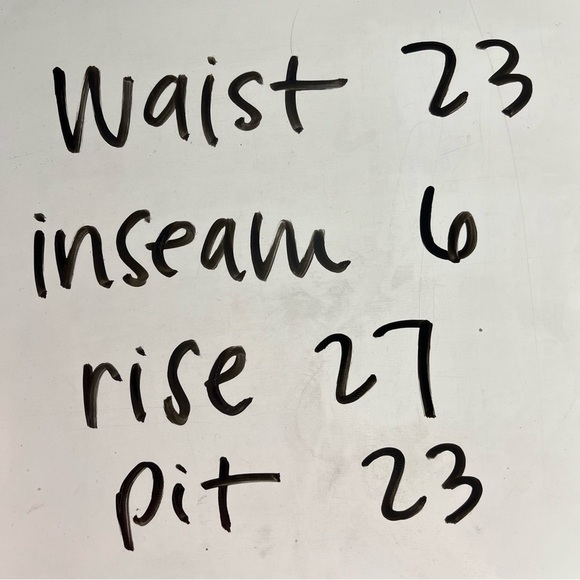 Waist 23
inseam 6
rise 27
pit 23